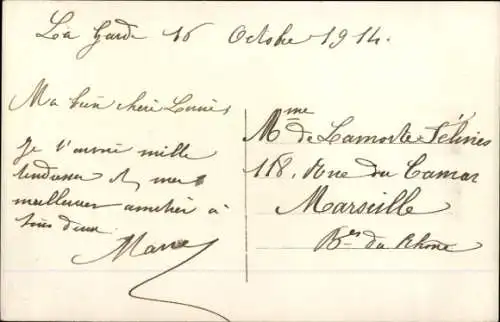 La Garde 16 Octobre 1914.
Ma bien chère Louise
Je t'envoie mille
tendresses et mes
meilleures amitiés à
tous deux
Marie
Mme de Lamotte
118, Rue du Camas
Marseille
Bes du Rhône